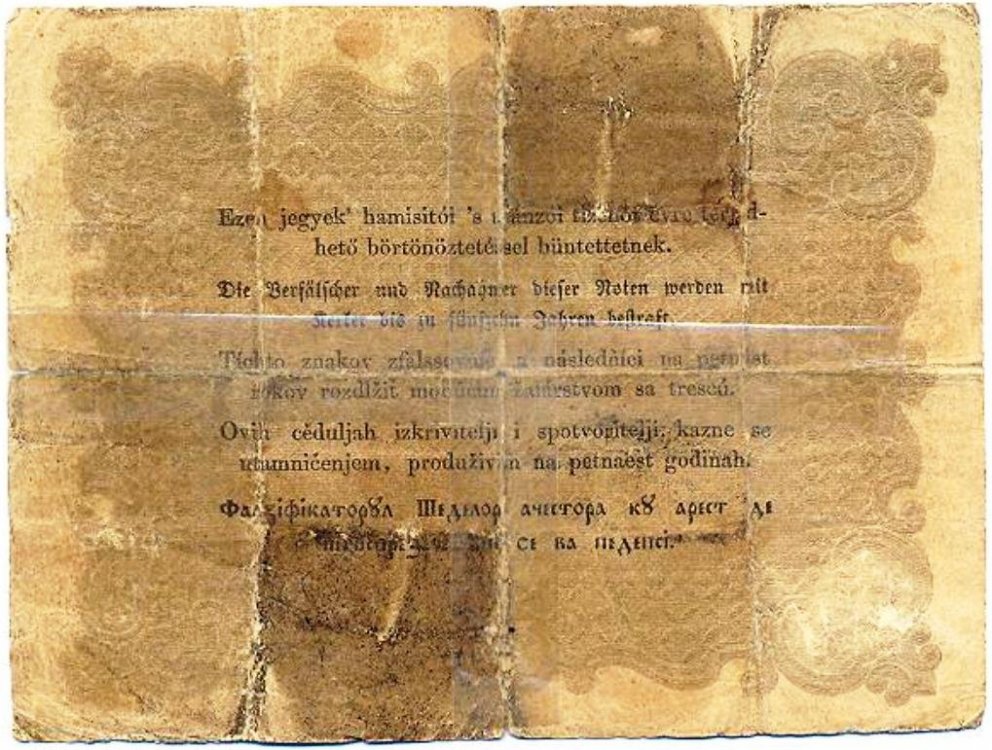 Ezen jegyek' hamisitói 's utánzói tizenöt évre terjed-
hető börtönöztetéssel büntettetnek.
Die Verfälscher und Nachahmer dieser Noten werden mit
Kerker bis zu fünfzehn Jahren bestraft.
Tíchto znakov zfalssovníci a následňíci na petnást
rokov rozdlžit mocúcim žalárstvom sa trescú.
Ovih céduljah izkrivitelji i spotvoritelji, kazne se
utamničenjem, produživim na petnaest godinah.
Фалсіфікаторꙋл Шеделор ачестора кꙋ арест де
се ва педепсі.